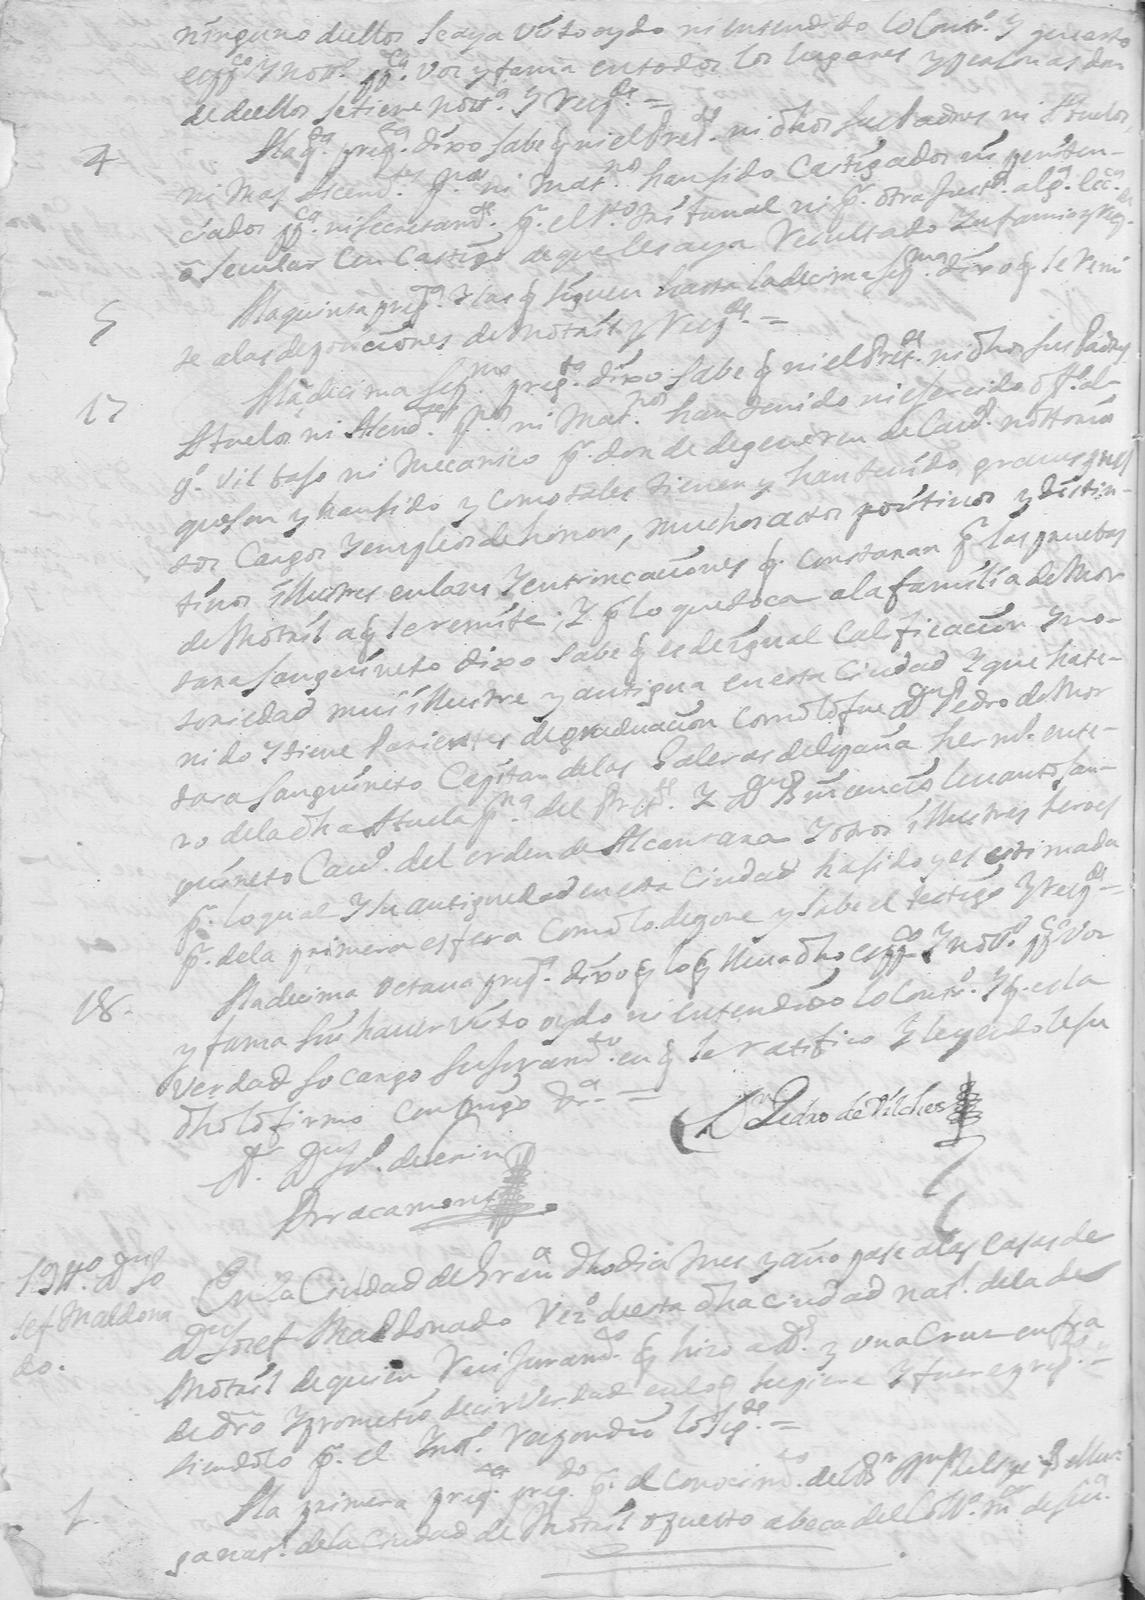 ninguno dellos se aya visto oydo ni entendido lo Contr.o Y questo
es ppco. Y nott.o pp.ca voz y fama en todos los lugares y personas don
de dellos se tiene nott.a Y resp.de =
4 A la q.ta preg.ta dixo sabe q ni el Pret.te ni dhos sus Padres ni Abuelos,
ni mas Ascend.tes p.nos ni Mat.nos han sido Castigados ni peniten-
ciados pp.ca ni secretam.te p.r el s.to Tribunal ni p.r otra Just.a alg.a Ecc.ca
o secular Con Castigo de que les aya resultado Infamia y resp.de
5 A la quinta preg.ta Y las q siguen hasta la decima sep.ma dixo q se remi
te a las deposiciones de Motril y resp.de =
17 A la decima sep.ma preg.ta dixo sabe q ni el Pret.te ni dhos sus Padres
Abuelos ni Ascend.tes p.nos ni Mat.nos han tenido ni ejercido off.o al-
g.o vil bajo ni Mecanico p.r donde degeneren de Cav.s nottorios
que son y han sido y como tales tienen y han tenido, grauos pues
tos Cargos Y empleos de honor, muchos actos positivos y distin-
tivos illustres enlazes Y entrincaciones q. constaran p.r las pruebas
de Motril a q se remite; Y p.r lo que toca a la familia de Mor
tara sanguineto dixo sabe q es de igual Calificacion Y no-
toriedad mui illustre y antigua en esta Ciudad Y que ha te-
nido Y tiene Parientes de graduacion como lo fue Dn Pedro de Mor
tara sanguineto Capitan de las Galeras de España herm.o ente-
ro de la dha Abuela p.na del Pret.te Y Dn Vincencio levanto san-
guineto Cav.o del orden de Alcantara Y otros illustres heroes
p.r lo qual Y su antiguedad en esta Ciudad ha sido y es estimada
p.r de la primera esfera Como lo depone y sabe el testigo Y resp.de =
18. A la decima octava preg.ta dixo q lo q lleva dho es ppco. Y nott.o pp.ca voz
y fama sin haver visto oydo ni entendido lo Contr.o Y q. es la
verdad so cargo su juram.to en q se ratifico Y leyendole su
dho lo firmo Conmigo dr.a =
Dn Pedro de Vilches
Dr. Dn
Bracamonte
T.go 9 Dn Jo
sef Maldona
do.
En la Ciudad de Gran.a dho dia mes y año pase a las casas de
Dn Josef Maldonado Vez.o de esta dha ciudad nat.l de la de
Motril de quien recivi Juram.to q hizo a D.s y una Cruz en for.a
de dro Y prometio decir verdad en lo q supiere Y fuere preg.do Y
siendolo p.r el Int.o respondio lo sig.te =
1. A la primera preg.ta preg.do p.r el conocim.to del Sr Dn Phelipe Bellu-
ga nat.l de la Ciudad de Motril opuesto a beca del Coll.o m.r de Cu.a